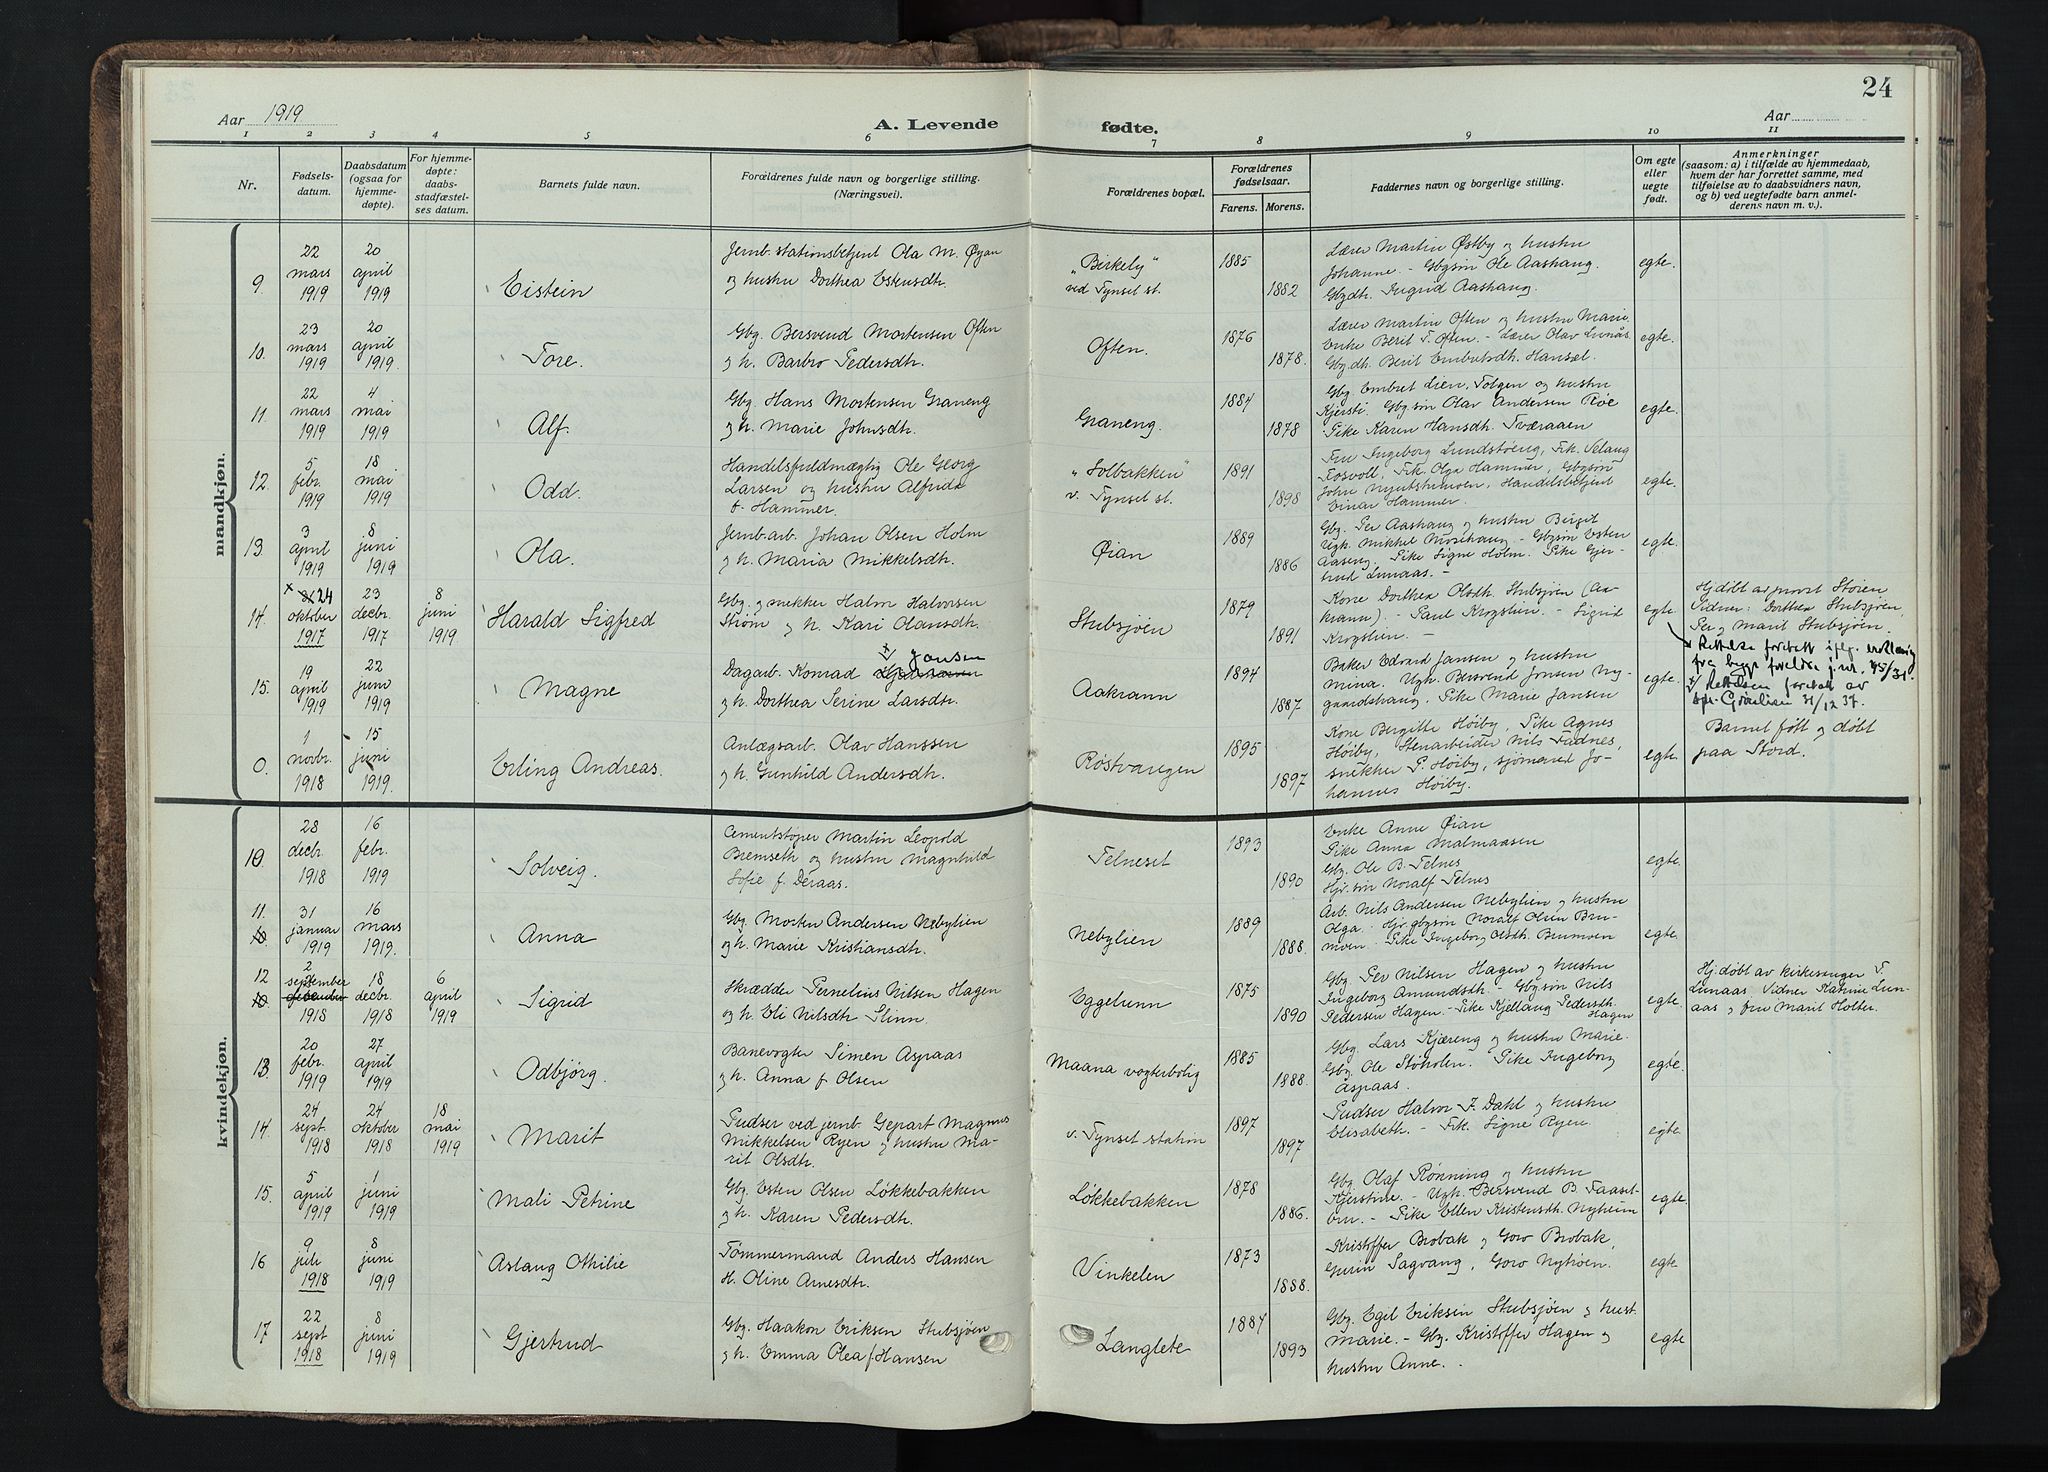 24
Aar 1919
A. Levende fødte.
Aar
1 2 3 4 5 6 7 8 9 10 11
Nr.
Fødselsdatum.
Daabsdatum (ogsaa for hjemmedøpte).
For hjemmedøpte: daabsstadfæstelses datum.
Barnets fulde navn.
Forældrenes fulde navn og borgerlige stilling. (Næringsvei).
Forældrenes bopæl.
Forældrenes fødselsaar.
Farens. Morens.
Faddernes navn og borgerlige stilling.
Om egte eller uegte født.
Anmerkninger (saasom: a) i tilfælde av hjemmedaab, hvem der har forrettet samme, med tilføielse av to daabsvidners navn, og b) ved uegtefødte barn anmelderens navn m. v.).
mandkjøn.
9. 22 mars 1919 20 april 1919 Eistein
Jernb. stationsbetjent Ola M. Øyan
og hustru Dorthea Estensdtr.
"Birkely"
ved Tynset st.
1885 1882
Lærer Martin Østby og hustru
Johanne. - Gbgsøn Ole Aashaug.
Gbgdtr. Ingrid Aashaug.
egte.
10. 23 mars 1919 20 april 1919. Tore.
Gbg. Bersvend Mortensen Often
og h. Barbro Pedersdtr.
Often.
1876 1878.
Lærer Martin Often og hustru Marie.
Enke Berit T. Often. - Lærer Olav Lunås
Gbg.dtr. Berit Embretsdtr. Hansel.
egte.
11. 22 mars 1919 4 mai 1919 Alf.
Gbg. Hans Mortensen Graneng
og h. Marie Johnsdtr.
Graneng.
1884 1878
Gbg Embret Lien, Tolgen og hustru
Kjersti. Gbg.søn Olav Andersen Røe
Pike Karen Hansdtr. Tværaaen
egte.
12. 5 febr. 1919 18 mai 1919 Odd.
Handelsfuldmægtig Ole Georg
Larsen og hustru Alfrida
f. Hammer.
"Solbakken"
v. Tynset st.
1891 1898
Fru Ingeborg Lundstrøeng, Frk. Selaug
Fosvoll, Frk. Olga Hammer, Gbgsøn
John Nyutstumoen, Handelsbetjent
Einar Hammer.
egte.
13. 3 april 1919 8 juni 1919 Ola.
Jernb.arb. Johan Olsen Holm
og h. Maria Mikkelsdtr.
Øian
1889 1886
Gbg. Per Aashaug og hustru Birgit
Ugk. Mikkel Moshaug - Gbgsøn Esten
Aaseng, Pike Signe Holm. Pike Gjertrud Lunaas. -
egte.
14. × 24 oktober 1917 23 decbr. 1917 8 juni 1919 Harald Sigfred
Gbg. og snekker Halvor Halvorsen
Strøm og h. Kari Olausdtr.
Stubsjøen
1879 1891
Kone Dorthea Olsdtr. Stubsjøen (Aakrann). - Paul Krogstien. - Sigrid
Krogstien. -
egte
Hj.døbt av provst Støren
Vidner: Dorthea Stubsjøen,
Per og Marit Stubsjøen.
× Rettelse foretatt iflg. erklæring
fra begge foreldre j.nr. 45/31.
15. 19 april 1919 22 juni 1919 Magne
Dagarb. Konrad Jansen
og h. Dorthea Serine Larsdtr.
Aakrann
1894 1887
Baker Edvard Jansen og hustru
Mina. Ugk. Bersvend Jonsen Nygaardshaug, Pike Marie Jansen
egte.
Rettelsen foretatt av
31/12 37.
0. 1 novbr. 1918 15 juni 1919. Erling Andreas.
Anlægsarb. Olav Hanssen
og h. Gunhild Andersdtr.
Røstvangen
1895 1897
Kone Bergitte Høiby, Pike Agnes
Høiby, Stenarbeider Nils Fadnes,
snekker P. Høiby, sjømand Johannes Høiby.
egte.
Barnet født og døbt
paa Stord.
kvindekjøn.
10. 28 decbr. 1918 16 febr. 1919 Solveig.
Cementstøper Martin Leopold
Bremseth og hustru Magnhild
Sofie f. Deraas.
Telneset
1893 1890
Enke Anne Øian
Pike Anna Malmaasen
Gbg. Ole B. Telnes
Hjv. søn Noralf Telnes
egte
11. 10. 31 januar 1919 16 mars 1919. Anna
Gbg. Morten Andersen Nebylien
og h. Marie Kristiansdtr.
Nebylien
1889 1888.
Arb. Nils Andersen Nebylien og hustru
Olga. - Hjv. gbgsøn Noralf Olsen Brumoen. - Pike Ingeborg Olsdtr. Brumoen
egte.
12 10 2 september december 1918 18 decbr. 1918 6 april 1919 Sigrid
Skrædder Pernelius Nilsen Hagen
og h. Eli Nilsdtr. Slinn.
Eggelunn
1875 1890
Gbg Per Nilsen Hagen og hustru
Ingeborg Amundsdtr. - Gbgsøn Nils
Pedersen Hagen. - Pike Kjellaug Pedersdtr.
Hagen
egte.
Hj.døbt av kirkesanger T.
Lunaas. Vidner Katrine Lunaas og fru Marit Holter.
13. 20 febr. 1919 27 april 1919 Odbjörg.
Banevogter Simen Aspaas
og h. Anna f Olsen
Maana vogterbolig
1885 1888.
Gbg. Lars Kjæreng og hustru Marie.
Gbg. Ole Støholen. Pike Ingeborg
Aspaas.
egte.
14. 24 sept. 1918 24 oktober 1918 18 mai 1919 Marit
Pudser ved jernb. Gepart Magnus
Mikkelsen Ryen og hustru Marit Olsdtr.
v. Tynset station
1897 1897
Pudser Halvor J. Dahl og hustru
Elisabeth. - Frk. Signe Ryen
egte.
15. 5 april 1919 1 juni 1919 Mali Petrine
Gbg. Esten Olsen Løkkebakken
og h. Karen Pedersdtr.
Løkkebakken
1878 1886.
Gbg. Olaf Rønning og hustru
Kjerstine. - Ugk. Bersvend B. Faaset-
- Pike Ellen Kristensdtr. Nyheim
egte.
16 9 juli 1918 8 juni 1919 Aslaug Othilie
Tømmermand Anders Hansen
H. Oline Arnesdtr.
Vinkelen
1873 1888.
Kristoffer Brobak og Goro Brobak,
Guren Sagvang, Goro Nytrøen.
egte
17 22 sept 1918 8 juni 1919 Gjertrud
Gbg. Haakon Eriksen Stubsjøen
og h. Emma Olea f Hansen
Langlete
1887 1893
Gbg. Egil Eriksen Stubsjøen og hust.
Marie. - Gbg. Kristoffer Hagen og
hustru Anne.
egte